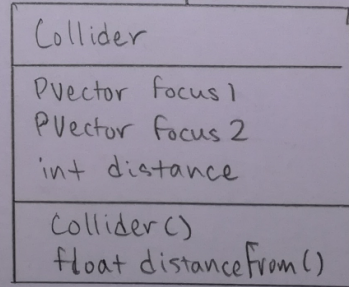 Collider
PVector focus1
PVector focus 2
int distance
Collider()
float distanceFrom()